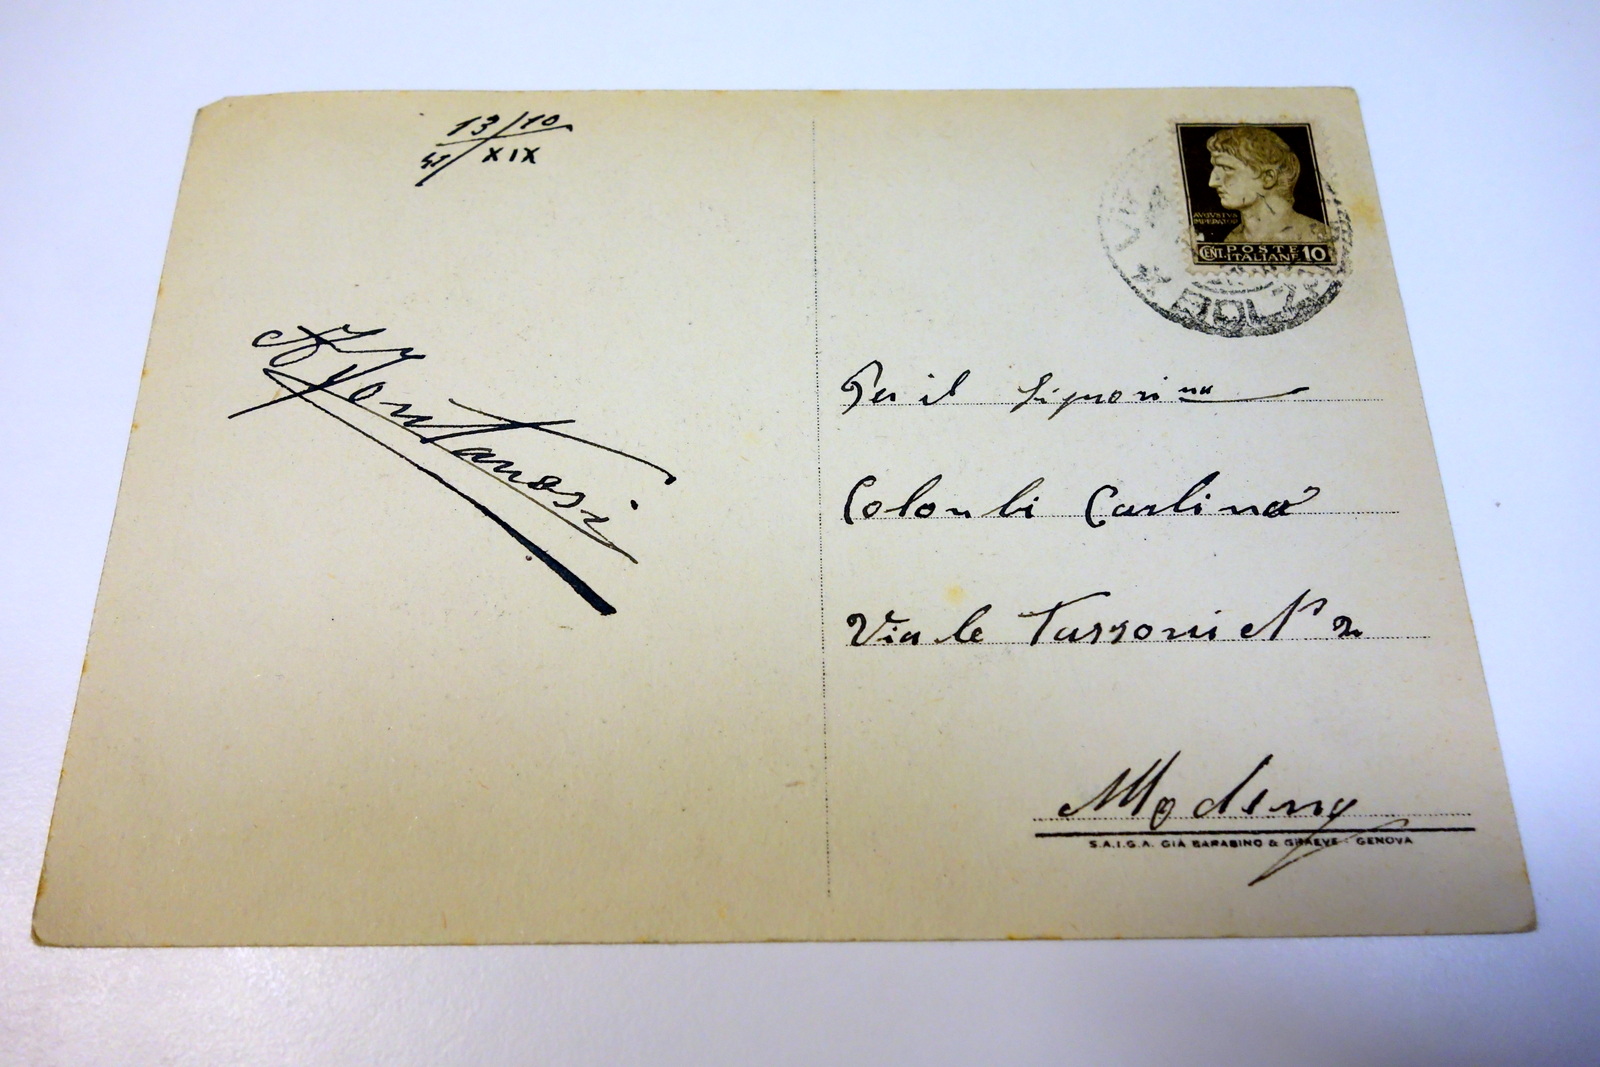 13/10
41/XIX
AVGVSTVS
IMPERATOR
CENT. POSTE ITALIANE 10
BOLZ
Per il Signorina
Colombi Carlina
Viale Tassoni N° 2
Modena
S.A.I.G.A. GIÀ BARABINO & GRAEVE - GENOVA